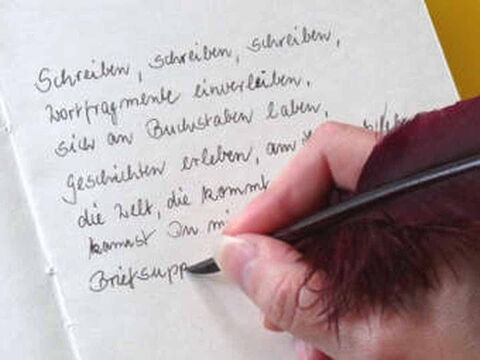 Schreiben, schreiben, schreiben,
Wortfragmente einverleiben,
sich an Buchstaben laben,
Geschichten erleben, am
die Welt, die kommt
kannst Du
Briefsupp